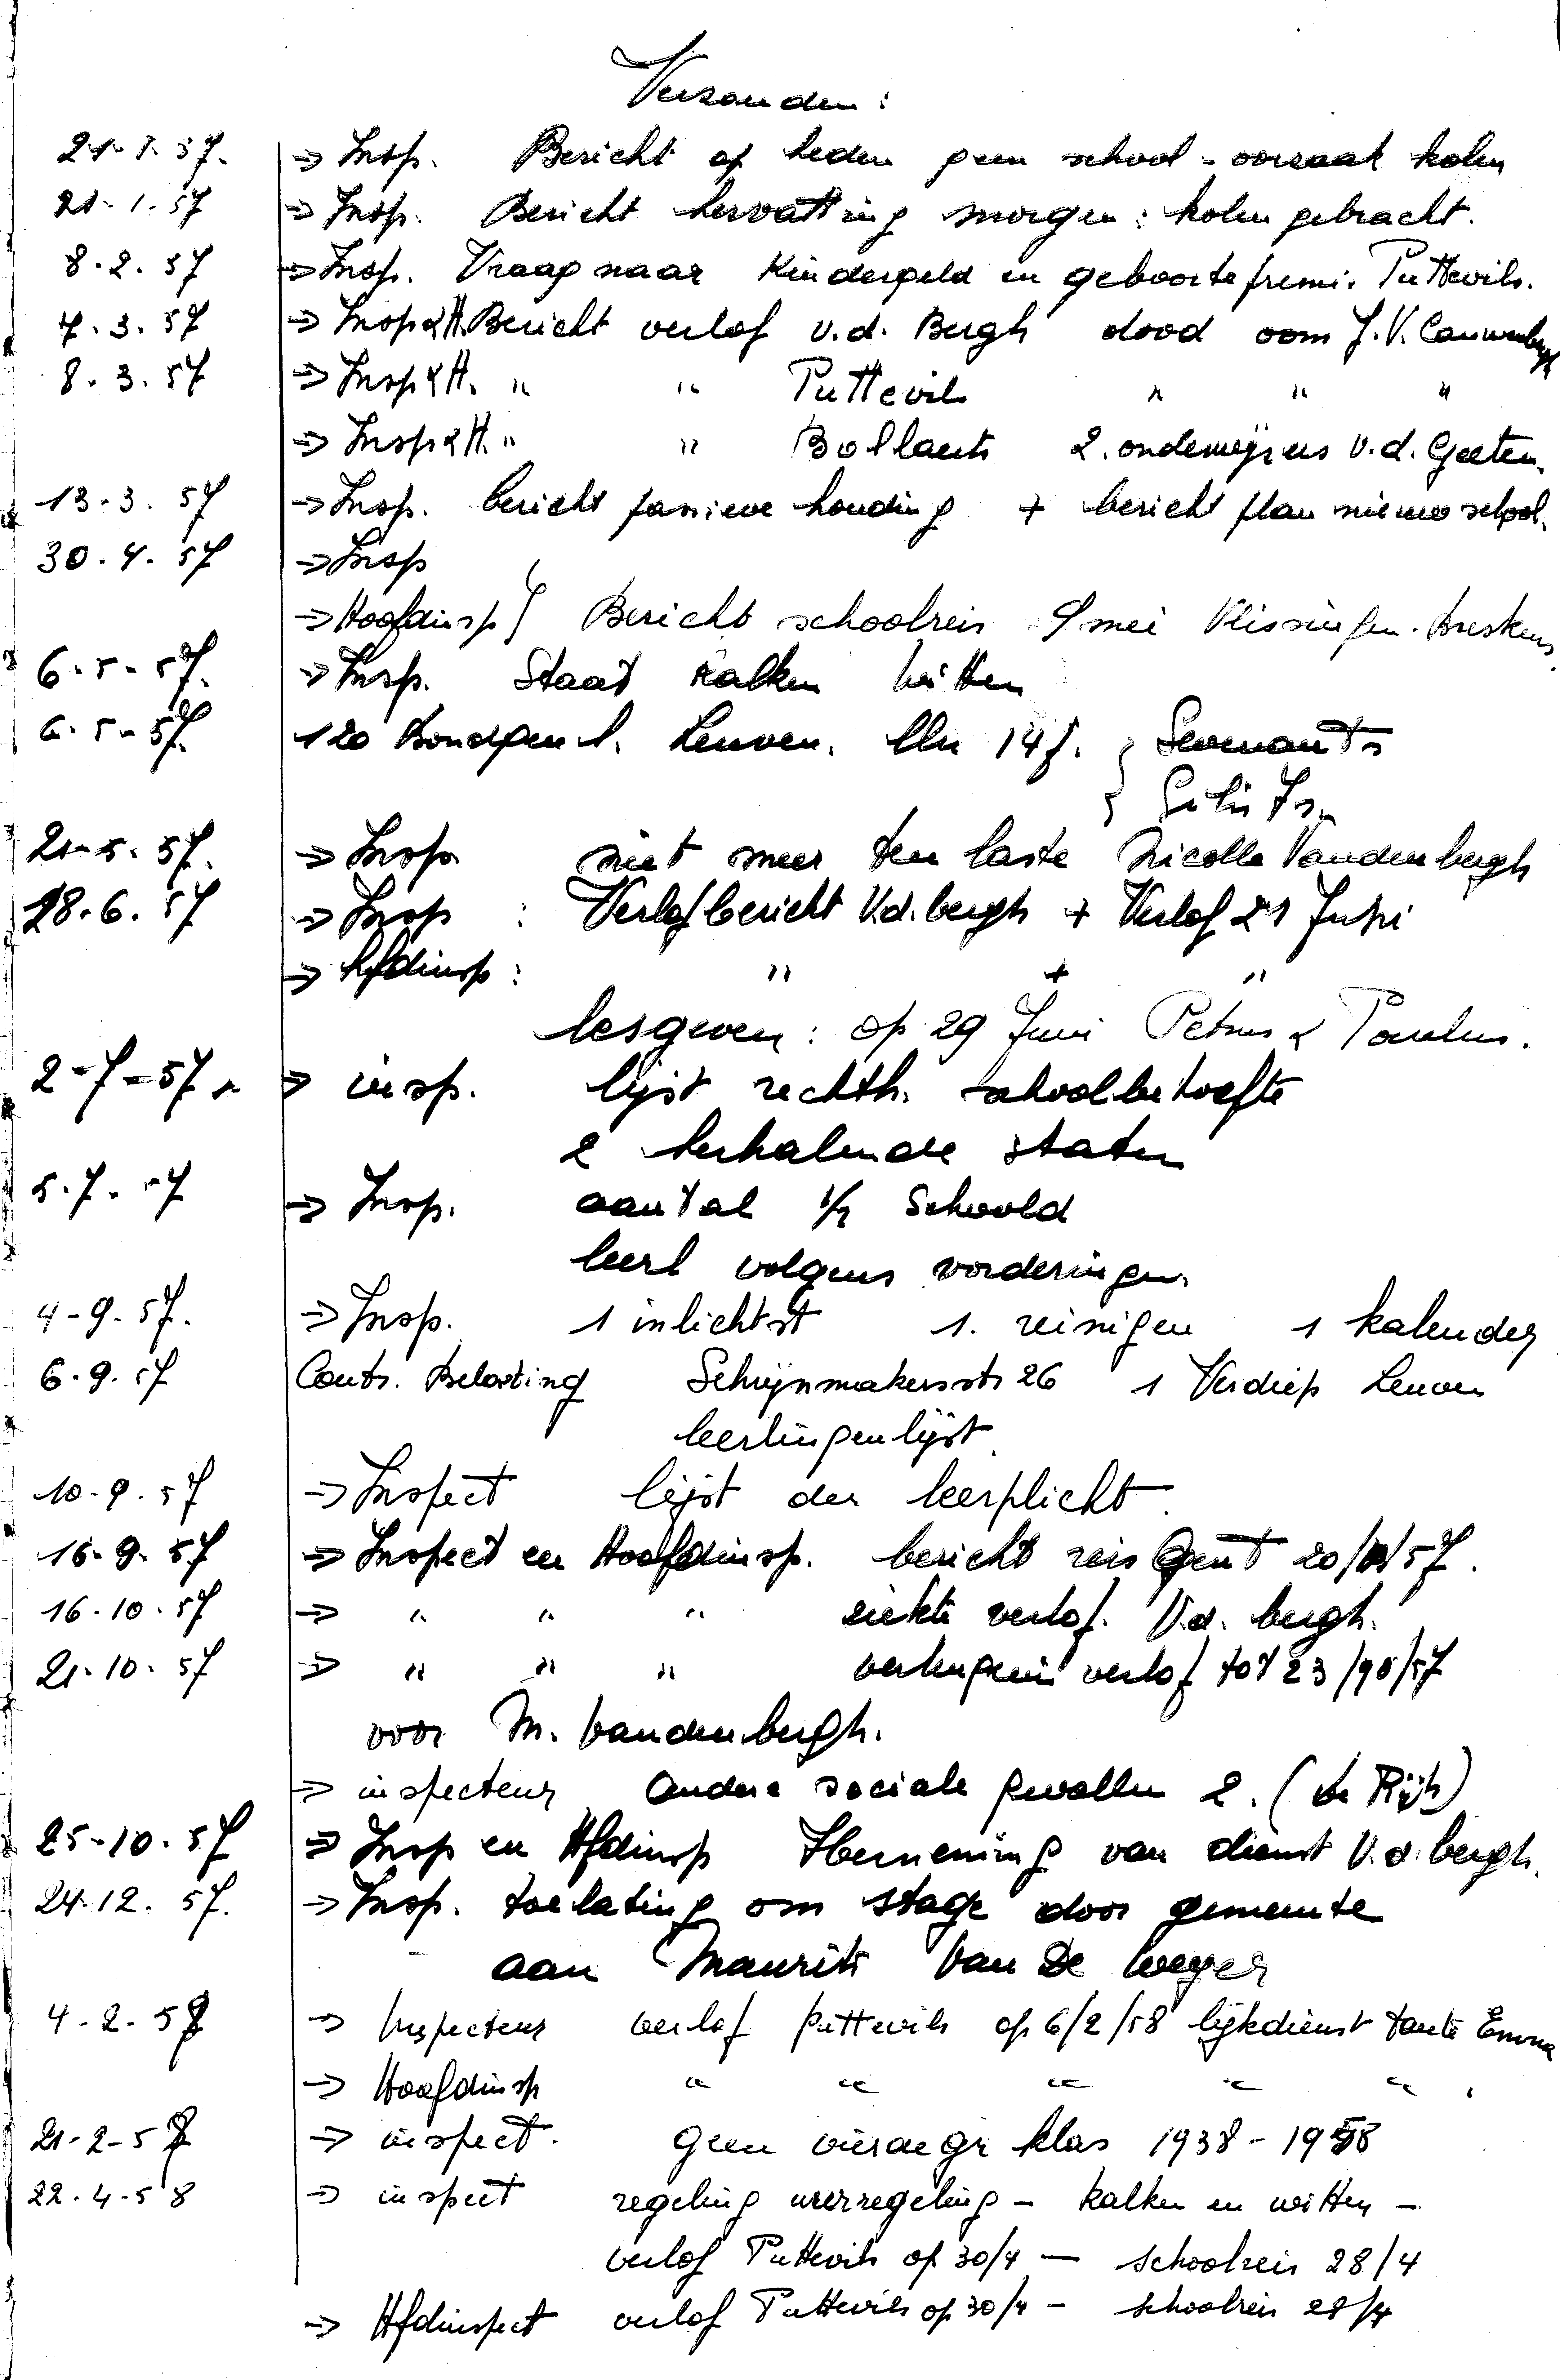 Verzonden :
21-1-57. => Insp. Bericht op heden geen school - oorzaak kolen
21-1-57 => Insp. Bericht hervatting morgen : kolen gebracht.
8.2.57 => Insp. Vraag naar Kindergeld en geboortepremie Puttevils.
7.3.57 => Insp & H. Bericht verlof v.d. Bergh dood oom J.V. Cauwenbergh
8.3.57 => Insp & H. " " Puttevils " " "
=> Insp & H. " " Bollaerts 2. onderwijzers v.d. Geeten.
13-3.57 => Insp. bericht passieve houding + bericht plan nieuwe school.
30.4.57 => Insp
=> Hoofdinsp } Bericht schoolreis 9 mei Vlissingen. Breskens
6-5-57. => Insp. Staat kalken witten
6.5-57. 120 Bondgenl. Leuven. lln 14 j. }
21-5.57. => Insp. niet meer ten laste Nicolle Vandenbergh
28.6.57 => Insp : Verlofbericht V.d. bergh + Verlof 21 Juni
=> Hfdinsp : " + "
lesgeven : op 29 Juni Petrus & Paulus.
2-7-57. => insp. lijst rechth. schoolbehoefte
2 herhalende staten
5.7.57 => Insp. aantal 1/2 Schoold
leerl volgens vorderingen.
4-9-57. => Insp. 1 inlichtst 1. reinigen 1 kalender
6.9.57 Contr. Belasting Schrijnmakersstr 26 1 Verdiep Leuven
leerlingenlijst.
10-9.57 => Inspect lijst der leerplicht.
16-9.57 => Inspect en Hoofdinsp. bericht reis Gent 20/ /57.
16-10.57 => " " " ziekte verlof. V.d. bergh.
21-10.57 => " " " verlengen verlof tot 23/10/57
voor M. Vandenbergh.
=> inspecteur andere sociale gevallen 2. (de Rijk)
25-10.57 => Insp en Hfdinsp Herneming van dienst V.d. bergh.
24.12.57. => Insp. toelating om stage door gemeente
aan Maurits Van De Weyer
4-2-58 => Inspecteur verlof Puttevils op 6/2/58 lijkdienst tante Emma
=> Hoofdinsp " " " " "
21-2-58 => inspect. geen vierde gr klas 1938-1958
22.4-58 => inspect regeling uurregeling - kalken en witten -
verlof Puttevils op 30/4 — schoolreis 28/4
=> Hfdinspect verlof Puttevils op 30/4 - schoolreis 28/4